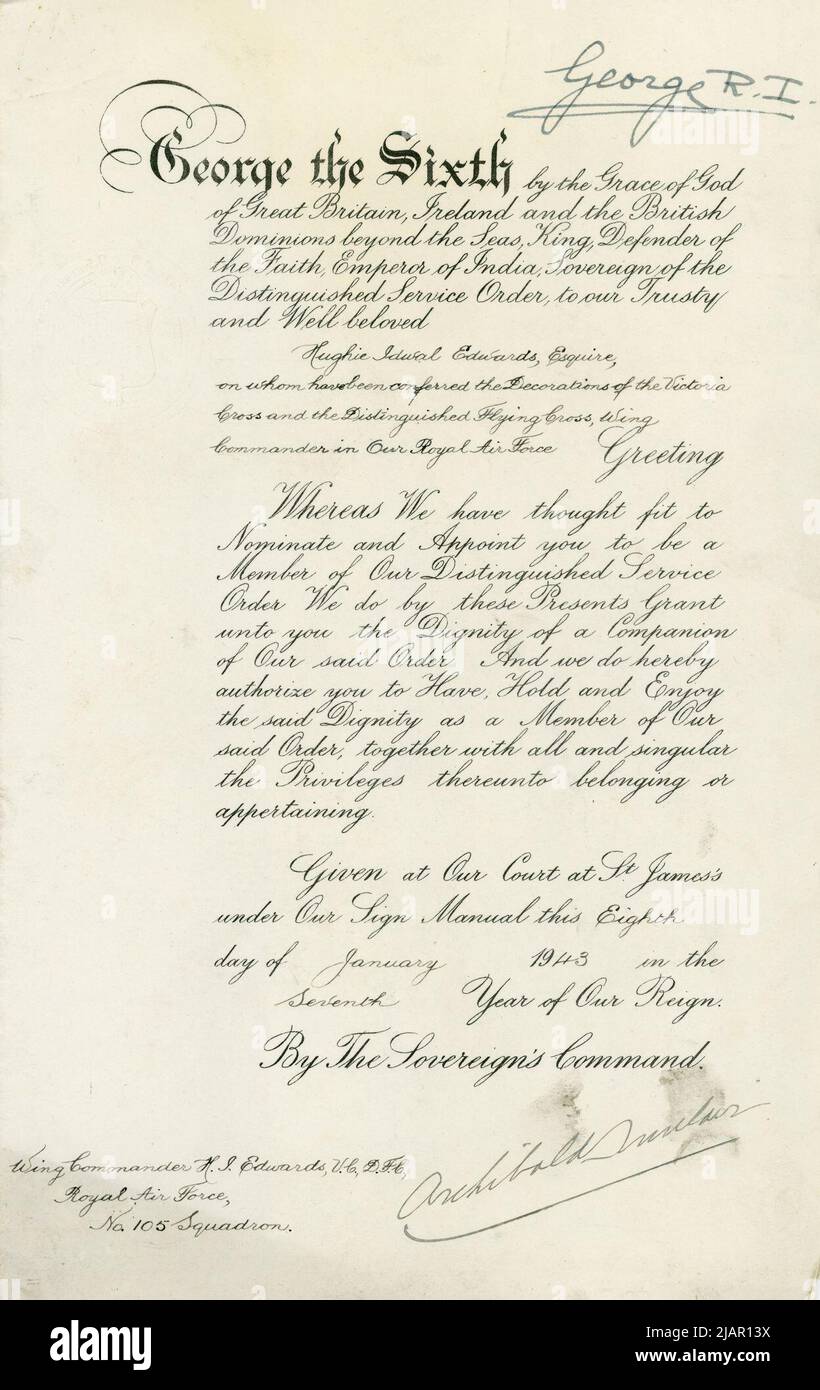 George R.I.
George the Sixth by the Grace of God
of Great Britain, Ireland and the British
Dominions beyond the Seas, King, Defender of
the Faith, Emperor of India, Sovereign of the
Distinguished Service Order, to our Trusty
and Well beloved
Hughie Idwal Edwards, Esquire,
on whom have been conferred the Decorations of the Victoria
Cross and the Distinguished Flying Cross, Wing
Commander in Our Royal Air Force Greeting
Whereas We have thought fit to
Nominate and Appoint you to be a
Member of Our Distinguished Service
Order We do by these Presents Grant
unto you the Dignity of a Companion
of Our said Order And we do hereby
authorize you to Have, Hold and Enjoy
the said Dignity as a Member of Our
said Order, together with all and singular
the Privileges thereunto belonging or
appertaining.
Given at Our Court at St. James's
under Our Sign Manual this Eighth
day of January 1943 in the
Seventh Year of Our Reign.
By The Sovereign's Command.
Archibald Sinclair
Wing Commander H. I. Edwards, V.C., D.F.C.,
Royal Air Force,
No. 105 Squadron.
alamy
alamy
Image ID: 2JAR13X
www.alamy.com